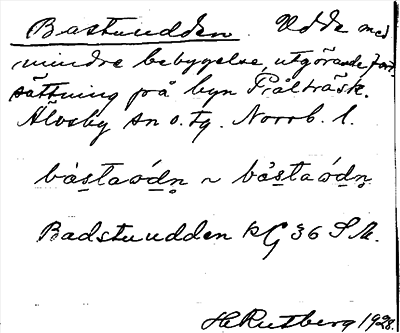 Bastuudden. Udde med
mindre bebyggelse, utgörande fort-
sättning på byn Pålträsk.
Älvsby sn o. tg. Norrb. l.
bàstaódn ~ bàstaódn
Badstuudden kG 36 S.M.
H Rutberg 1928.